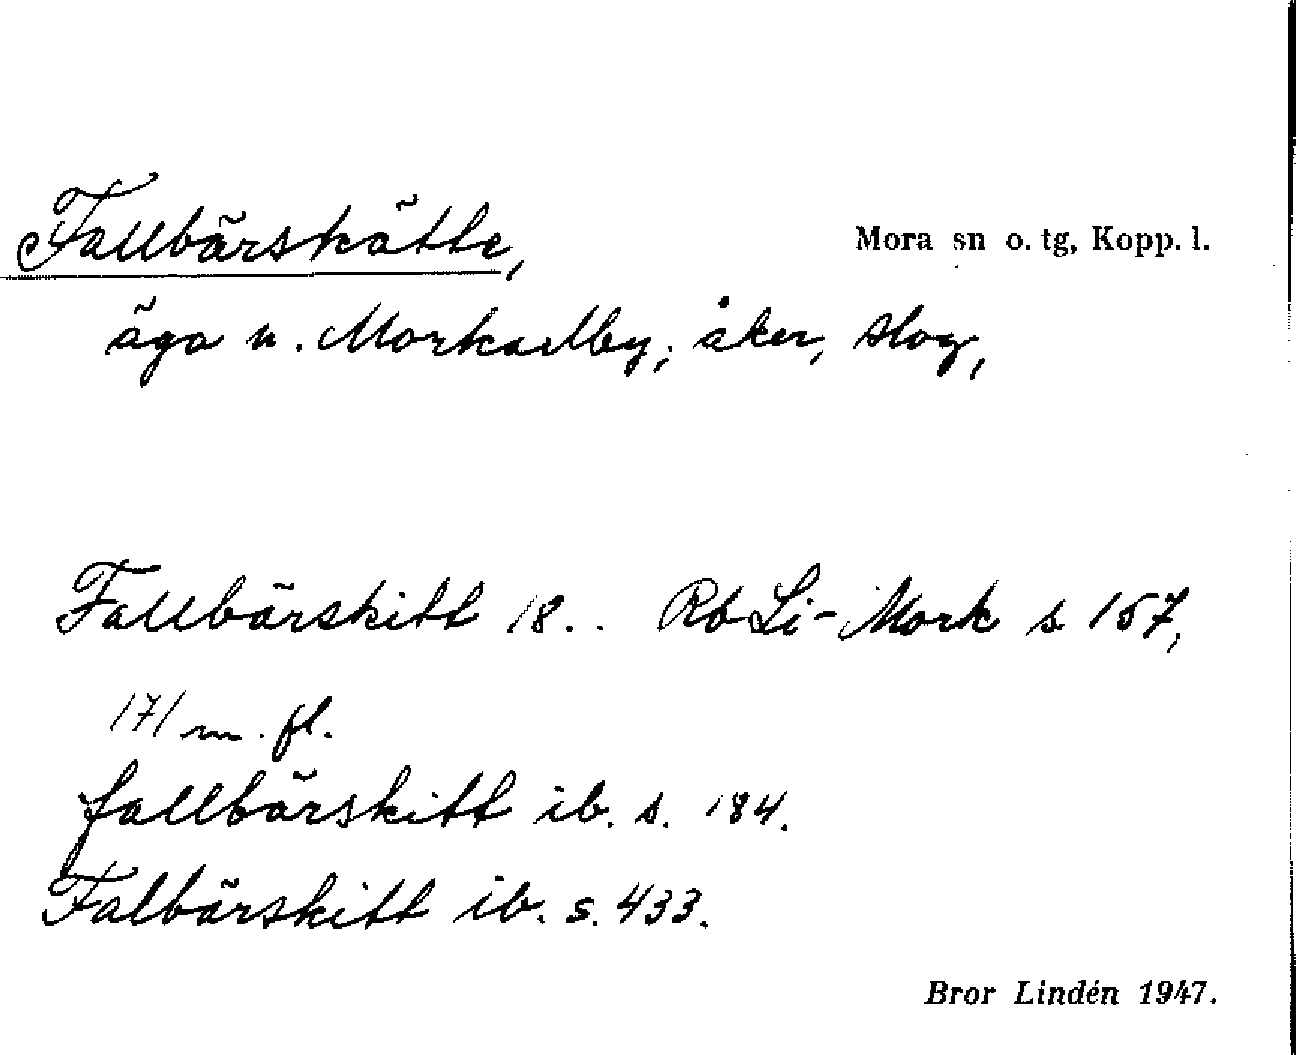 Fallbärskätte,
Mora sn o. tg, Kopp. l.
äga v. Morkarlby; åker, slog,
Fallbärskitt 18.. Rb Li-Mork s 157,
171 m. fl.
fallbärskitt ib. s. 184.
Falbärskitt ib. s. 433.
Bror Lindén 1947.